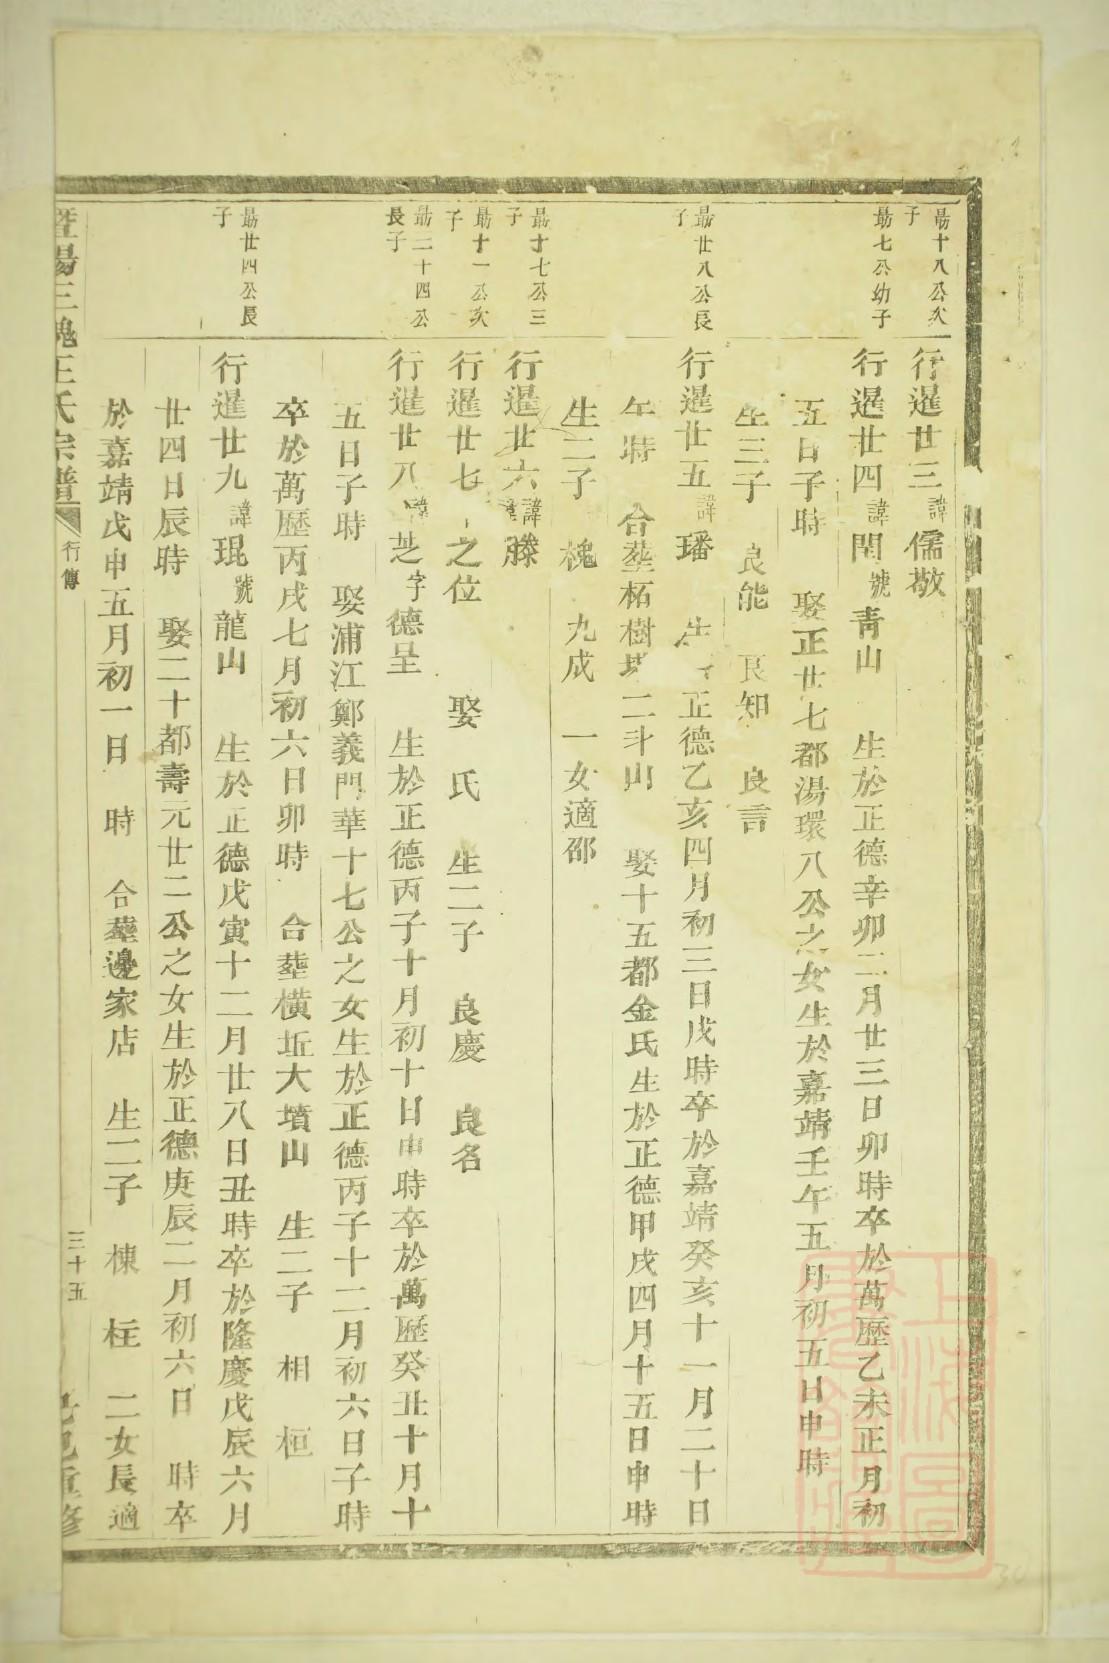 勗十八公次子
行暹廿三諱儒敬
勗七公幼子
行暹廿四諱閏號靑山 生於正德辛卯二月廿三日卯時卒於萬歷乙未正月初
五日子時 娶正廿七都湯環八公之女生於嘉靖壬午五月初五日申時
生三子 良能 良知 良言
勗廿八公長子
行暹廿五諱璠 生 正德乙亥四月初三日戌時卒於嘉靖癸亥十一月二十日
午時 合塟柘樹 二斗山 娶十五都金氏生於正德甲戌四月十五日申時
生二子 槐 九成 一女適邵
勗十七公三子
行暹廿六諱滕
勗十一公次子
行暹廿七 之位 娶 氏 生二子 良慶 良名
勗二十四公長子
行暹廿八諱芝字德呈 生於正德丙子十月初十日申時卒於萬歷癸丑十月十
五日子時 娶浦江鄭義門華十七公之女生於正德丙子十二月初六日子時
卒於萬歷丙戌七月初六日卯時 合塟橫坵大墳山 生二子 相 桓
勗廿四公長子
行暹廿九諱琨號龍山 生於正德戊寅十二月廿八日丑時卒於隆慶戊辰六月
廿四日辰時 娶二十都壽元廿二公之女生於正德庚辰二月初六日 時卒
於嘉靖戊申五月初一日 時 合塟邊家店 生二子 棟 柱 二女長適
暨陽三槐王氏宗譜 行傳 三十五 重修
上海圖書館藏
30